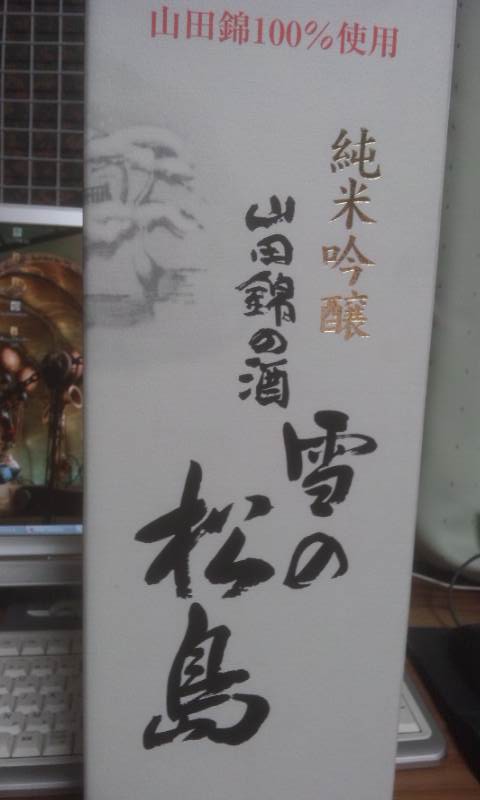 山田錦100%使用
純米吟醸
山田錦の酒
雪の
松島